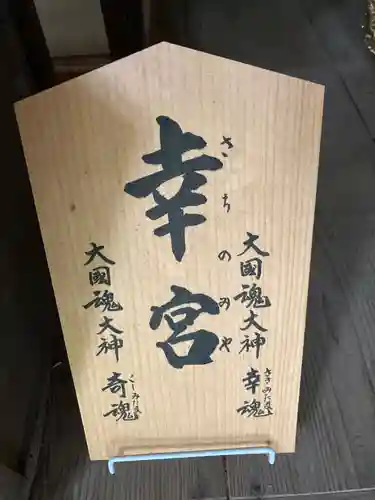 大國魂大神 幸魂
さきみたま
幸宮
さちのみや
大國魂大神 奇魂
くしみたま